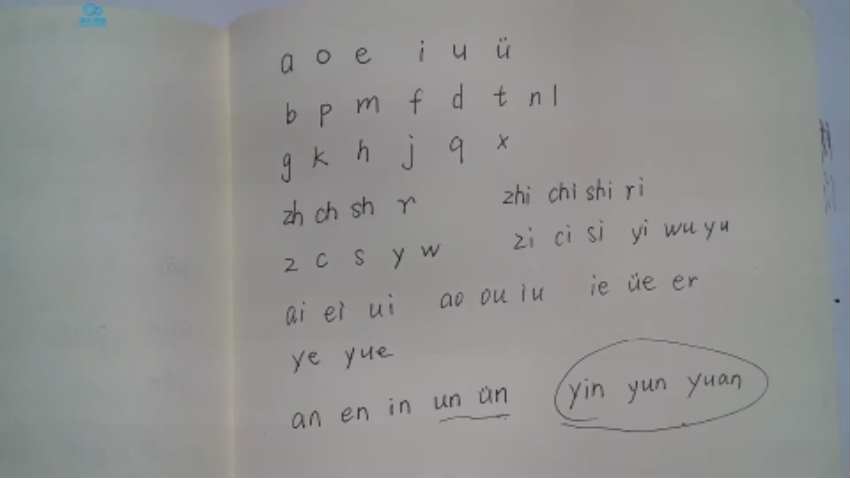 a o e i u ü
b p m f d t n l
g k h j q x
zh ch sh r zhi chi shi ri
z c s y w zi ci si yi wu yu
ai ei ui ao ou iu ie üe er
ye yue
an en in un ün yin yun yuan